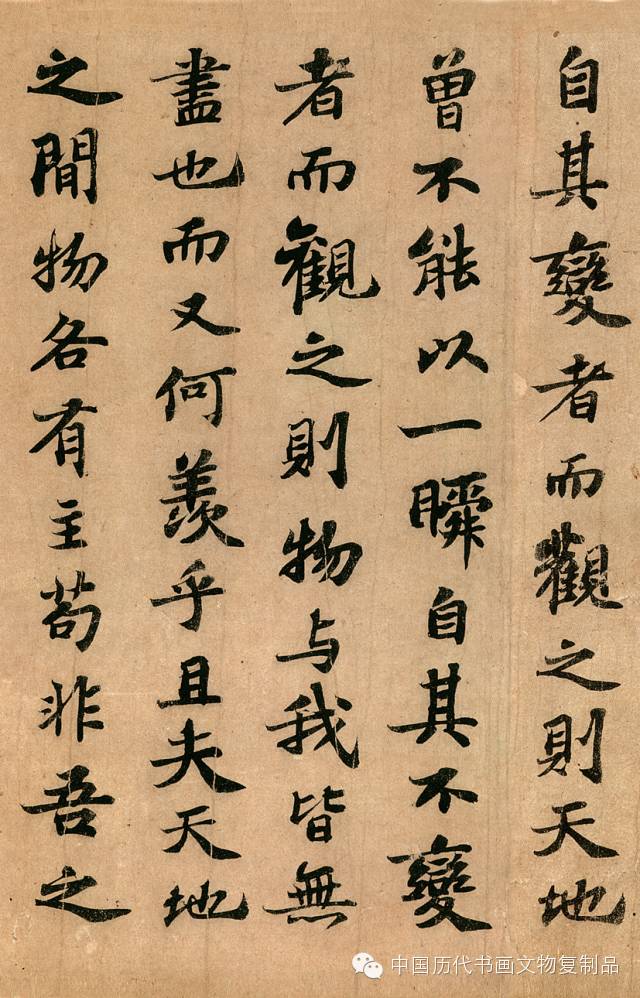 自其變者而觀之則天地
曾不能以一瞬自其不變
者而觀之則物与我皆無
盡也而又何羨乎且夫天地
之間物各有主苟非吾之
中国历代书画文物复制品